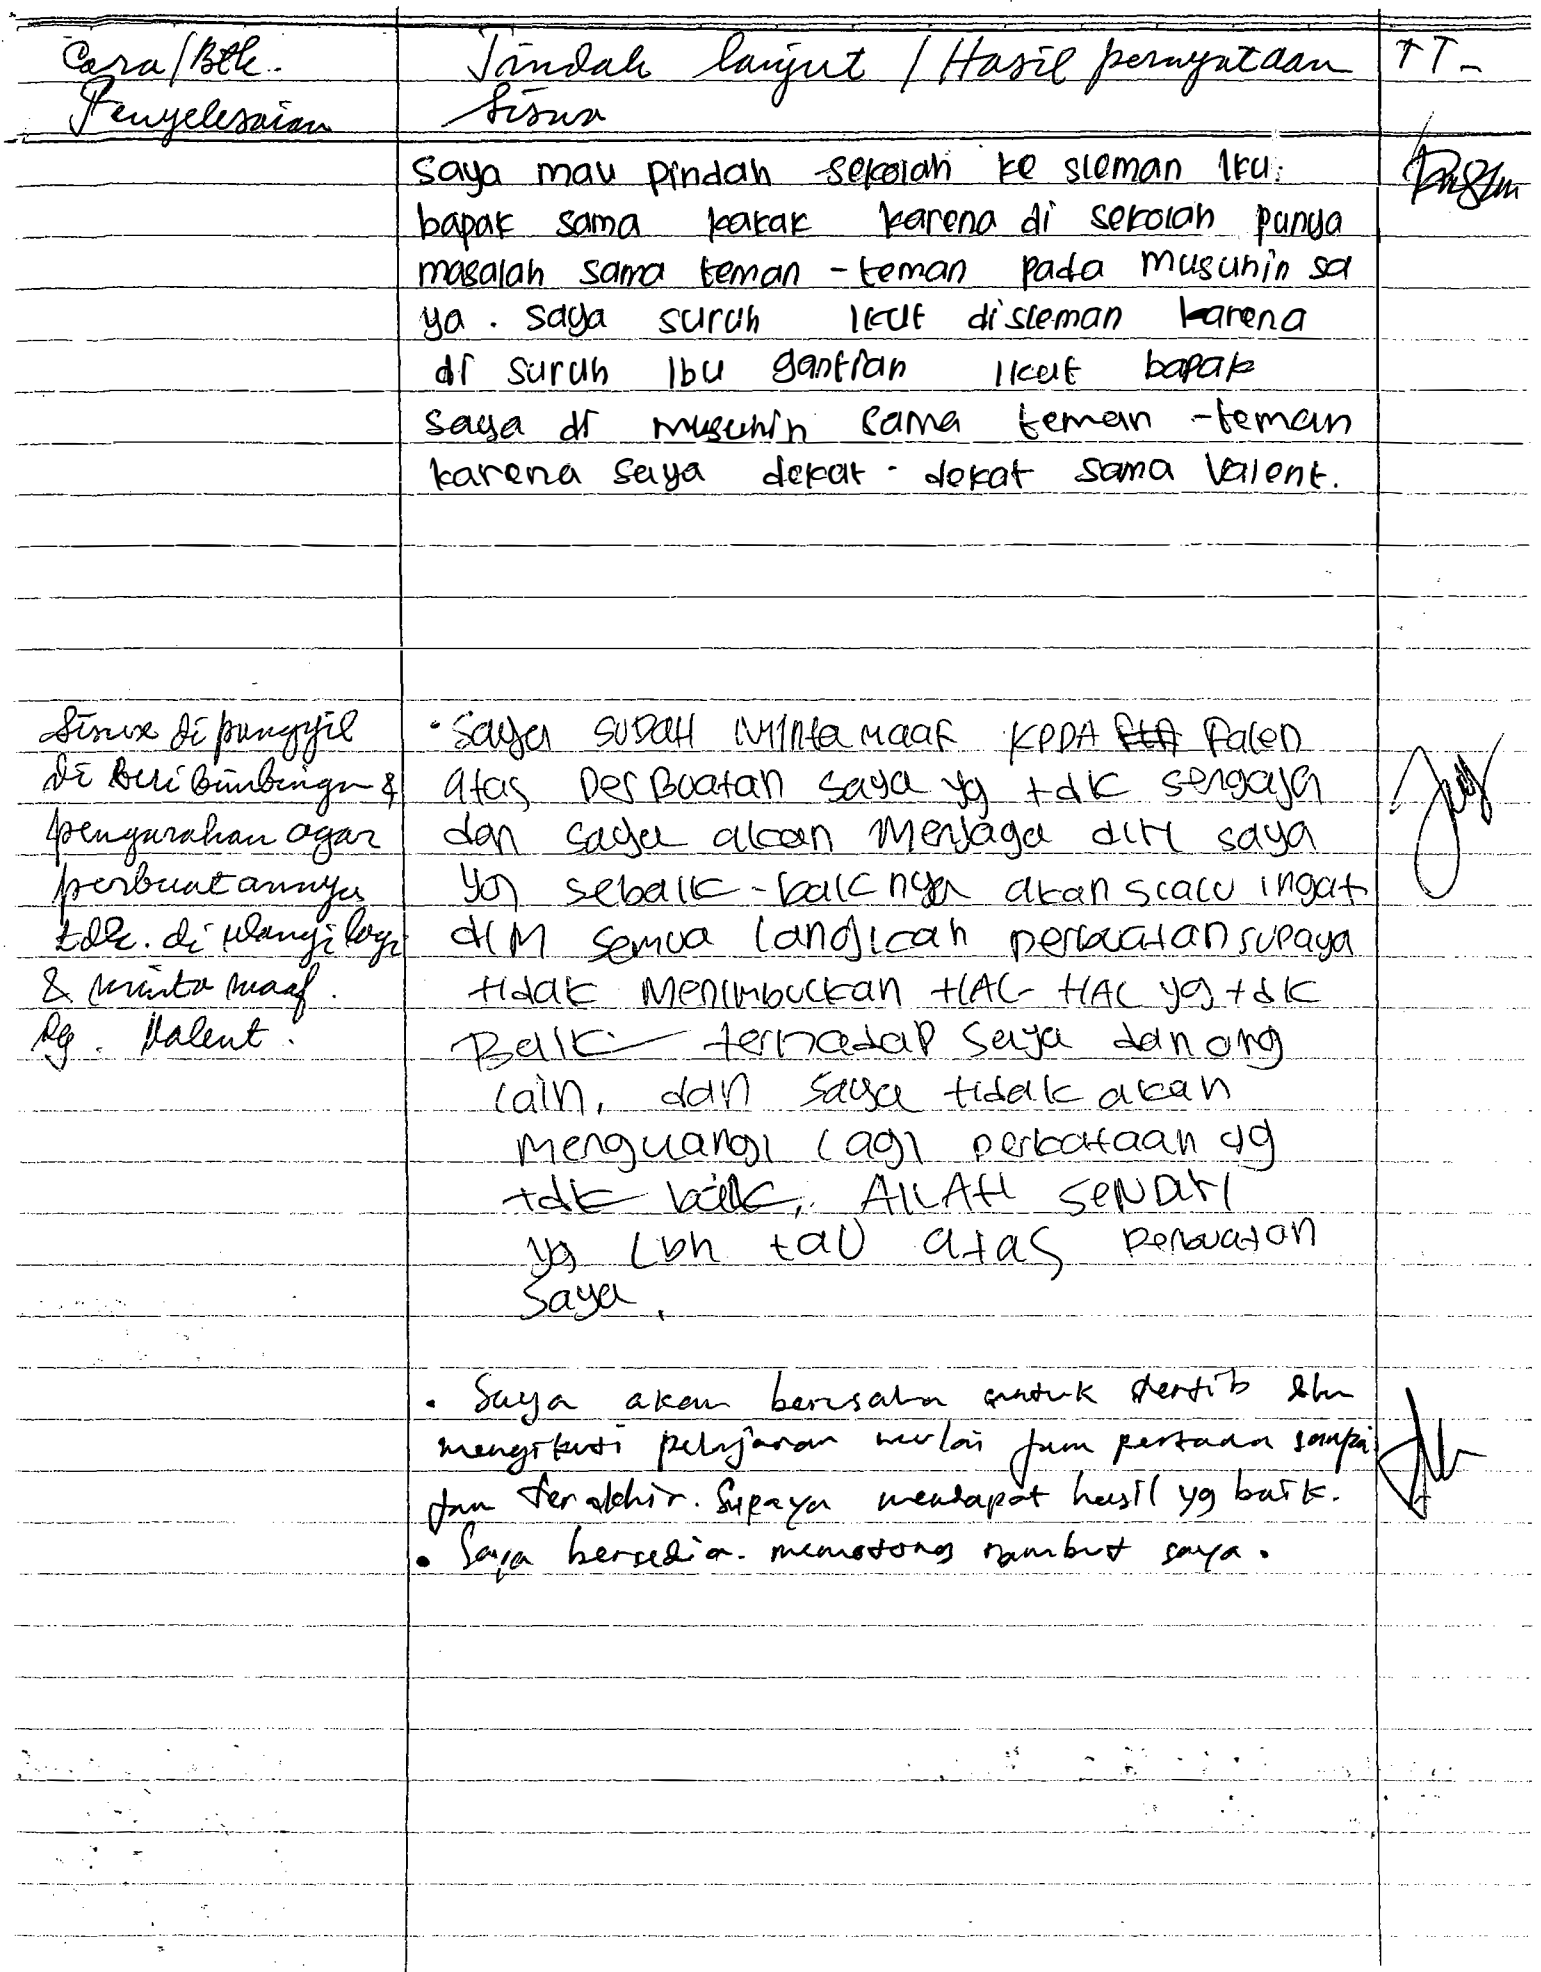 Cara/Btk. Tindak lanjut / Hasil pernyataan TT-
Penyelesaian Siswa
saya mau pindah sekolah ke sleman iku.
bapak sama kakak karena di sekolah punya
masalah sama teman - teman pada musuhin sa
ya. saya suruh ikut disleman karena
di suruh ibu gantian ikut bapak
saya di musuhin sama teman - teman
karena saya dekat - dekat sama Valent.
Siswa di panggil
di Beri bimbingn &
pengarahan agar
perbuatannya
tdk. di ulangi lagi
& minta maaf.
Dg. Valent.
• Saya SUDAH Minta maaf KPDA Falen
atas PerBuatan saya yg tdk sengaja
dan saya akan Menjaga diri saya
yg sebaik-baik nya akan slalu ingat
dlM semua langkah perbuatan supaya
tidak Menimbulkan HAL-HAL yg tdk
Baik terhadap saya dan org
lain, dan saya tidak akan
mengulangi lagi perbataan yg
tdk baik, AllAH SeNDiri
yg Lbh taU atas perbuatan
Saya.
• Saya akan berusaha untuk tertib
mengikuti pelajaran mulai jam pertama sampai
jam terakhir. Supaya mendapat hasil yg baik.
• Saya bersedia memotong rambut saya.